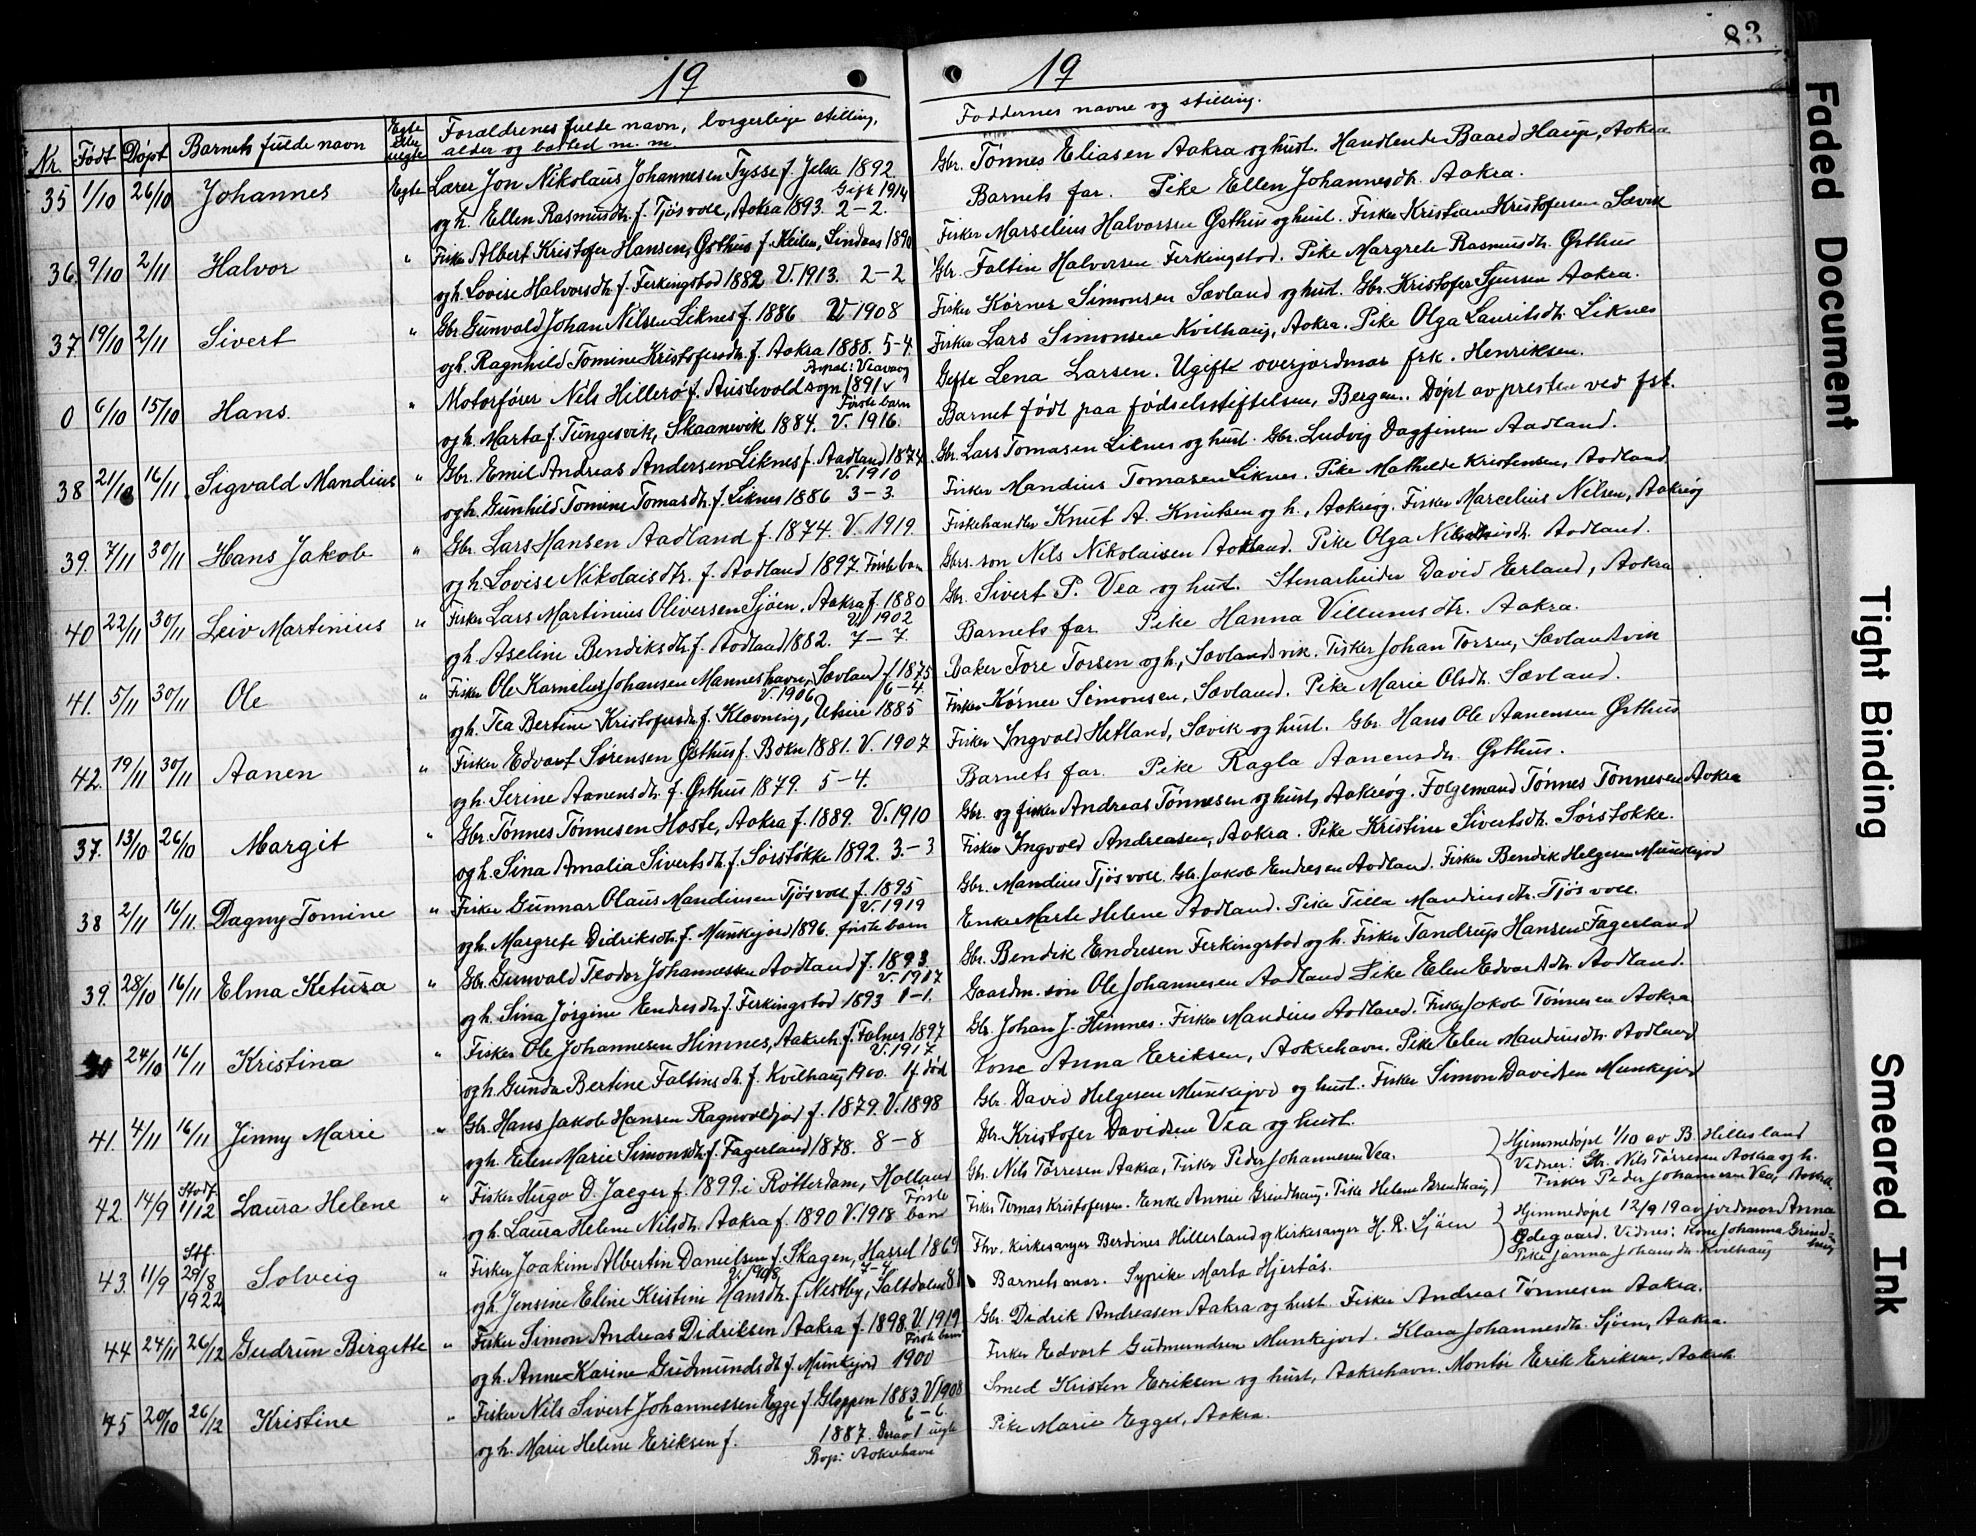 83
19
19
Nr. Født Døpt Barnets fulde navn Egte eller uegte Forældrenes fulde navn, borgerlige stilling,
alder og bosted m. m.
Faddernes navne og stilling.
35 1/10 26/10 Johannes Egte Lærer Jon Nikolaus Johannesen Tysse f. Jelsa 1892. Gift 1914
og h. Ellen Rasmusdtr. f. Tjøsvoll, Aakra 1893. 2-2.
Gbr. Tønnes Eliasen Aakra og hust. Handlende Baard Hauge, Aakra
Barnets far. Pike Ellen Johannesdtr. Aakra.
36. 9/10 2/11 Halvor " Fisker Albert Kristofer Hansen, Østhus f. Keilen, Lindaas 1890
og h. Lovise Halvorsdtr. f. Ferkingstad 1882 V. 1913. 2-2
Fisker Marselius Halvorsen Østhus og hust. Fisker Kristian Kristofersen Sævik
Gbr. Faltin Halvorsen Ferkingstad. Pike Margrete Rasmusdtr. Østhus
37 19/10 2/11 Sivert " Gbr. Gunvald Johan Nilsen Liknes f. 1886 V. 1908
og h. Ragnhild Tomine Kristofersdtr. f. Aakra 1888. 5-4.
Fisker Kørner Simonsen Sævland og hust. Gbr. Kristofer Sjursen Aakra.
Fisker Lars Simonsen Kvilhaug, Aakra. Pike Olga Lauritsdtr. Liknes
0 6/10 15/10 Hans. " Motorfører Nils Hillerø f. Austevold sogn 1891 Veavaag
og h. Marta f. Tungesvik, Skaanevik 1884. V. 1916. Første barn
Gifte Lena Larsen. Ugifte overjordmor frk. Henriksen.
Barnet født paa fødselsstiftelsen, Bergen. Døpt av presten ved fst.
38 21/10 16/11 Sigvald Mandius " Gbr. Emil Andreas Andersen Liknes f. Aadland 1874 V. 1910
og h. Gunhild Tomine Tomasdtr. f. Liknes 1886 3-3.
Gbr. Lars Tomasen Liknes og hust. Gbr. Ludvig Dagfinsen Aadland.
Fisker Mandius Tomasen Liknes. Pike Mathilde Kristensen, Aadland
39. 7/11 30/11 Hans Jakob " Gbr. Lars Hansen Aadland f. 1874. V. 1919.
og h. Lovise Nikolaisdtr. f. Aadland 1897. Første barn
Fiskehandler Knut A. Knutsen og h., Aakreøg. Fisker Marcelius Nilsen, Aakreøg
Gbrs. søn Nils Nikolaisen Aadland. Pike Olga Aadland.
40 22/11 30/11 Leiv Martinius " Fisker Lars Martinius Oliversen Sjøen, Aakra f. 1880 V. 1902
og h. Aseline Bendiksdtr. f. Aadland 1882. 7-7.
Gbr. Sivert P. Vea og hust. Stenarbeider David Erland, Aakra
Barnets far. Pike Hanna Villumsdtr. Aakra.
41. 5/11 30/11 Ole " Fisker Ole Karnelius Johansen Manneshavn, Sævland f. 1875 V. 1906 6-4.
og h. Tea Bertine Kristofersdtr. f. Klovning, Utsire 1885
Baker Tore Torsen og h., Sævlandsvik. Fisker Johan Torsen, Sævlandsvik
Fisker Kørner Simonsen, Sævland. Pike Marie Olsdtr. Sævland.
42. 19/11 30/11 Aanen " Fisker Edvart Sørensen Østhus f. Bokn 1881. V. 1907
og h. Serine Aanensdtr. f. Østhus 1879. 5-4.
Fisker Ingvald Hetland, Sævik og hust. Gbr. Hans Ole Aanensen Østhus
Barnets far. Pike Ragla Aanensdtr. Østhus.
37. 13/10 26/10 Margit " Gbr. Tønnes Tønnesen Hoste, Aakra f. 1889. V. 1910
og h. Sina Amalia Sivertsdtr. f. Sørstokke 1892. 3.-3
Gbr. og fisker Andreas Tønnesen og hust, Aakreøg. Følgemand Tønnes Tønnesen Aakra
Fisker Ingvold Andreasen, Aakra. Pike Kristine Sivertsdtr. Sørstokke.
38 2/11 16/11. Dagny Tomine " Fisker Gunnar Olaus Mandiusen Tjøsvoll f. 1895 V. 1919
og h. Margrete Didriksdtr. f. Munkejord 1896. første barn
Gbr. Mandius Tjøsvoll. Gbr. Jakob Endresen Aadland. Fisker Bendik Helgesen Munkejord
Enke Marte Helene Aadland. Pike Tilla Mandiusdtr. Tjøsvoll.
39. 28/10 16/11 Elma Ketura " Gbr. Gunvald Teodor Johannessen Aadland f. 1893 V. 1917
og h. Sina Jørgine Endresdtr. f. Ferkingstad 1893 1-1.
Gbr. Bendik Endresen Ferkingstad og h. Fisker Tandrup Hansen Fagerland
Gaardm. søn Ole Johannesen Aadland Pike Elen Edvartsdtr. Aadland.
24/10 16/11 Kristina " Fisker Ole Johannesen Himnes, Aakreh. f. Falnes 1897 V. 1917
og h. Gunda Bertine Faltinsdtr. f. Kvilhaug 1900. 1 f. død
Gbr. Johan J. Himnes. Fisker Mandius Aadland. Fisker Jakob Tønnesen Aakra
Kone Anna Eriksen, Aakrehavn. Pike Elen Mandiusdtr. Aadland
41. 4/11 16/11 Jinny Marie " Gbr. Hans Jakob Hansen Ragnvaldjord f. 1879. V. 1898
og h. Elen Marie Simonsdtr. f. Fagerland 1878. 8-8
Gbr. David Helgesen Munkejord og hust. Fisker Simon Davidsen Munkejord
Gbr. Kristofer Davidsen Vea og hust.
42. 14/9 Stadf. 1/12 Laura Helene " Fisker Hugo D. Jaeger f. 1899 i Rotterdam, Holland
og h. Laura Helene Nilsdtr. Aakra f. 1890 V. 1918 Første barn
Gbr. Nils Tørresen Aakra, Fisker Peder Johannesen Vea.
Fisker Tomas Kristofersen. Enke Annie Grindhaug. Pike Helene Grindhaug
Hjemmedøpt 1/10 av B. Hillesland
Vidner: Gbr. Nils Tørresen Aakra og h.
Fisker Peder Johannesen Vea, Aakra
43. 11/9 Stf. 29/8 1922 Solveig " Fisker Joakim Albertin Danielsen f. Skagen, Hassel 1869
og h. Jensine Eline Kristine Hansdtr. f. Nestby, Saltdalen 81 V. 1908 7-4
Fhv. kirkesanger Berdines Hillesland og kirkesanger H. R. Sjøen
Barnets mor. Sypike Marta Hjertås.
Hjemmedøpt 12/9 19 av jordmor Anna
Ødegaard. Vidnes: Kone Johanna Grindhaug
Pike Janna Johansdtr. Kvilhaug
44 24/11 26/12 Gudrun Birgitte " Fisker Simon Andreas Didriksen Aakra f. 1898. V. 1919
og h. Anne Karine Gudmundsdtr. f. Munkejord 1900 Første barn
Gbr. Didrik Andreasen Aakra og hust. Fisker Andreas Tønnesen Aakra.
Fisker Edvart Gudmundsen Munkejord. Klara Johannesdtr. Sjøen, Aakra.
45 20/10 26/12 Kristine " Fisker Nils Sivert Johannessen Egge f. Gloppen 1883. V 1908
og h. Marie Helene Eriksen f. 1887. 6-6. Derav 1 uegte
Bop: Aakrehavn
Smed Kristen Eriksen og hust, Aakrehavn. Montør Erik Eriksen, Aakreh.
Pike Marie Egge, Aakra.
Faded Document
Tight Binding
Smeared Ink